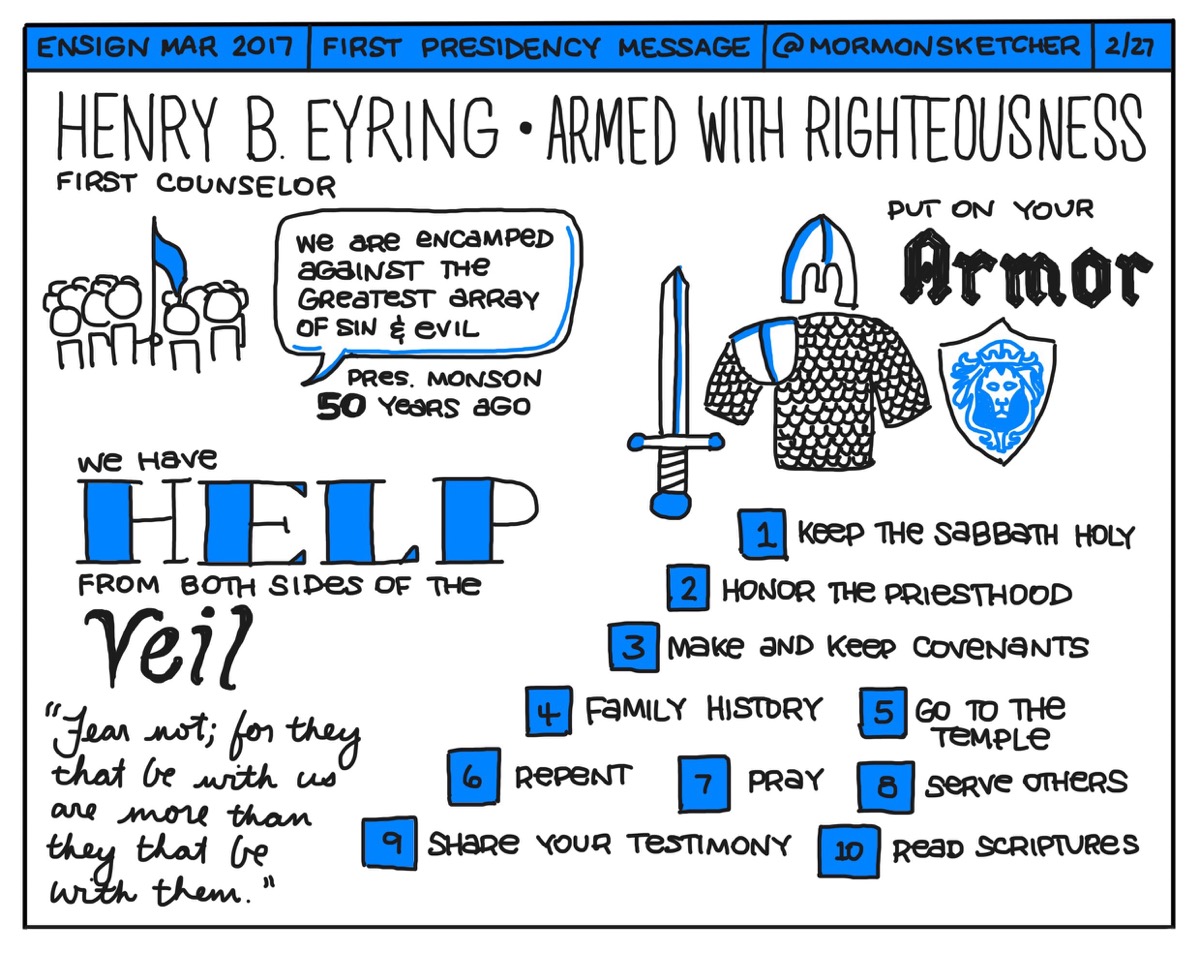 ENSIGN MAR 2017 FIRST PRESIDENCY MESSAGE @MORMONSKETCHER 2/27
HENRY B. EYRING • ARMED WITH RIGHTEOUSNESS
FIRST COUNSELOR
WE ARE ENCAMPED
AGAINST THE
GREATEST ARRAY
OF SIN & EVIL
PRES. MONSON
50 YEARS AGO
PUT ON YOUR
Armor
WE HAVE
HELP
FROM BOTH SIDES OF THE
Veil
"Fear not; for they
that be with us
are more than
they that be
with them."
1 KEEP THE SABBATH HOLY
2 HONOR THE PRIESTHOOD
3 MAKE AND KEEP COVENANTS
4 FAMILY HISTORY
5 GO TO THE
TEMPLE
6 REPENT
7 PRAY
8 SERVE OTHERS
9 SHARE YOUR TESTIMONY
10 READ SCRIPTURES